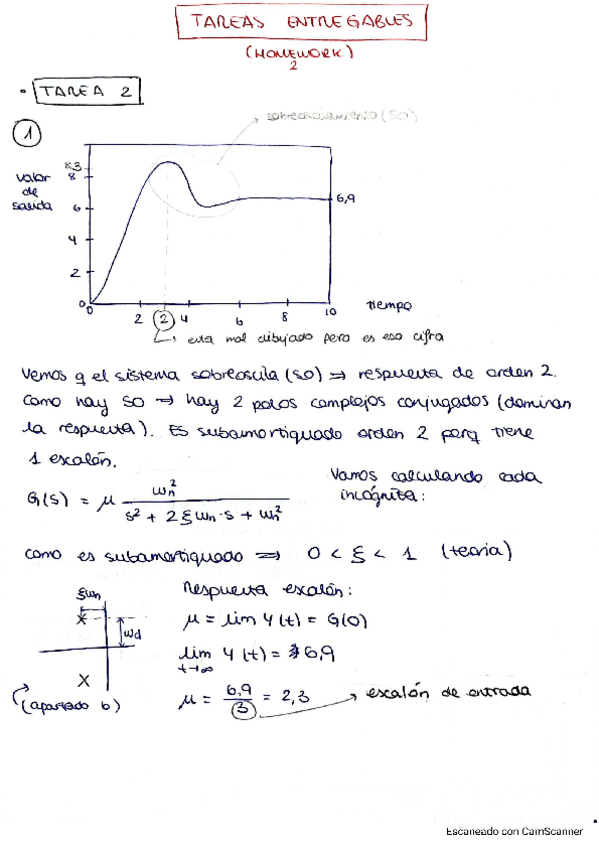 TAREAS ENTREGABLES
(HOMEWORK)
2
• TAREA 2
1
sobreoscilamiento (SO)
valor
de
salida
8'3
8
6
4
2
0
6,9
0
2
2
4
6
8
10
Tiempo
esta mal dibujado pero es esa cifra
Vemos q el sistema sobreoscila (SO) ⇒ respuesta de orden 2.
Como hay SO → hay 2 polos complejos conjugados (dominan
la respuesta). Es subamortiguado orden 2 porq tiene
1 escalón.
G(s) = μ wn² / (s² + 2ξwn·s + wn²)
Vamos calculando cada
incógnita:
como es subamortiguado ⇒ 0 < ξ < 1 (teoria)
ξwn
wd
(apartado b)
Respuesta escalón:
μ = lim y(t) = G(0)
lim y(t) = 6,9
t→∞
μ = 6,9 / 3 = 2,3 → escalón de entrada
Escaneado con CamScanner